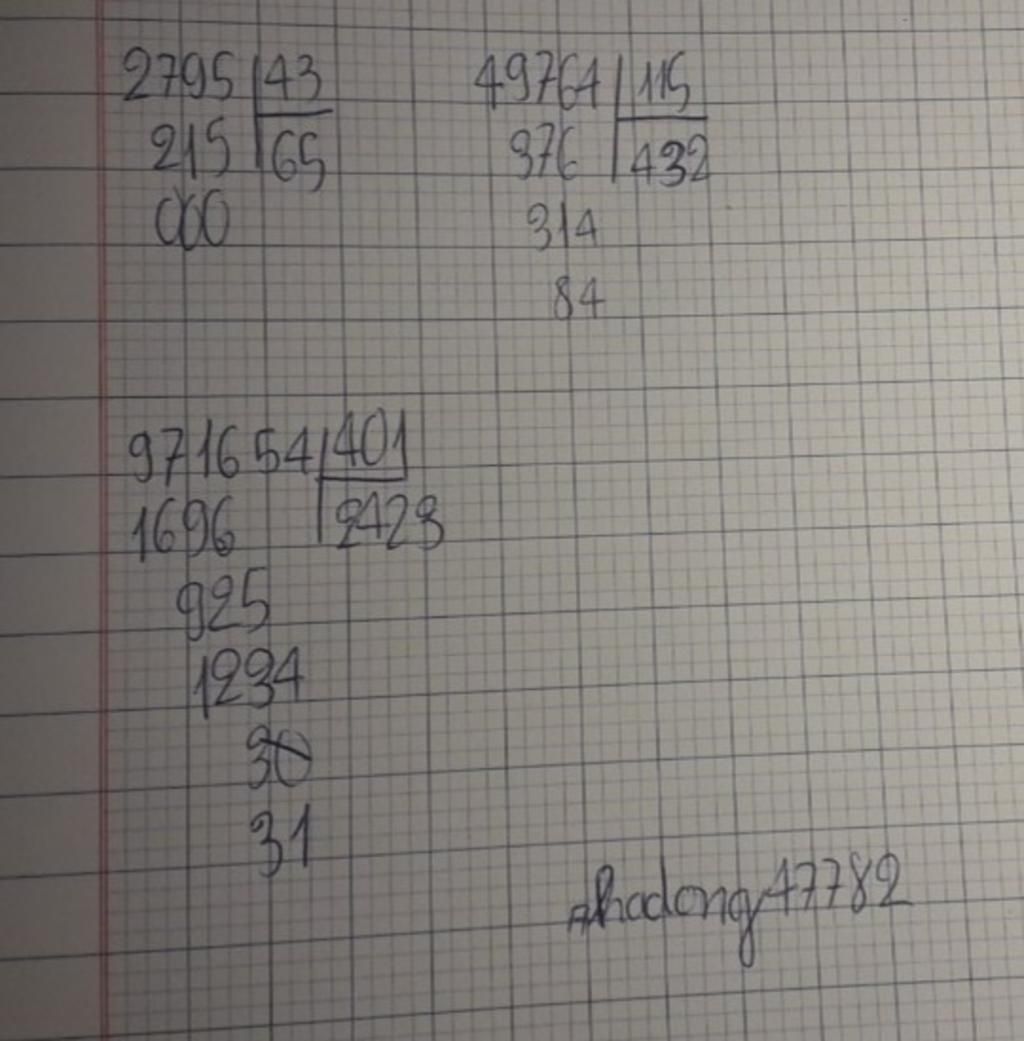 2795 43
215 65
000
49764 115
376 432
314
84
971654 401
1696 2423
925
1234
30
31
nhadong47782